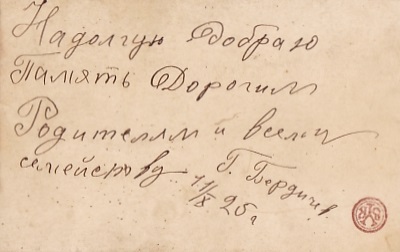 Надолгую добраю
Память Дорогим
Родителям и всему
семейству Г. Бердичев.
11/IX 25 г